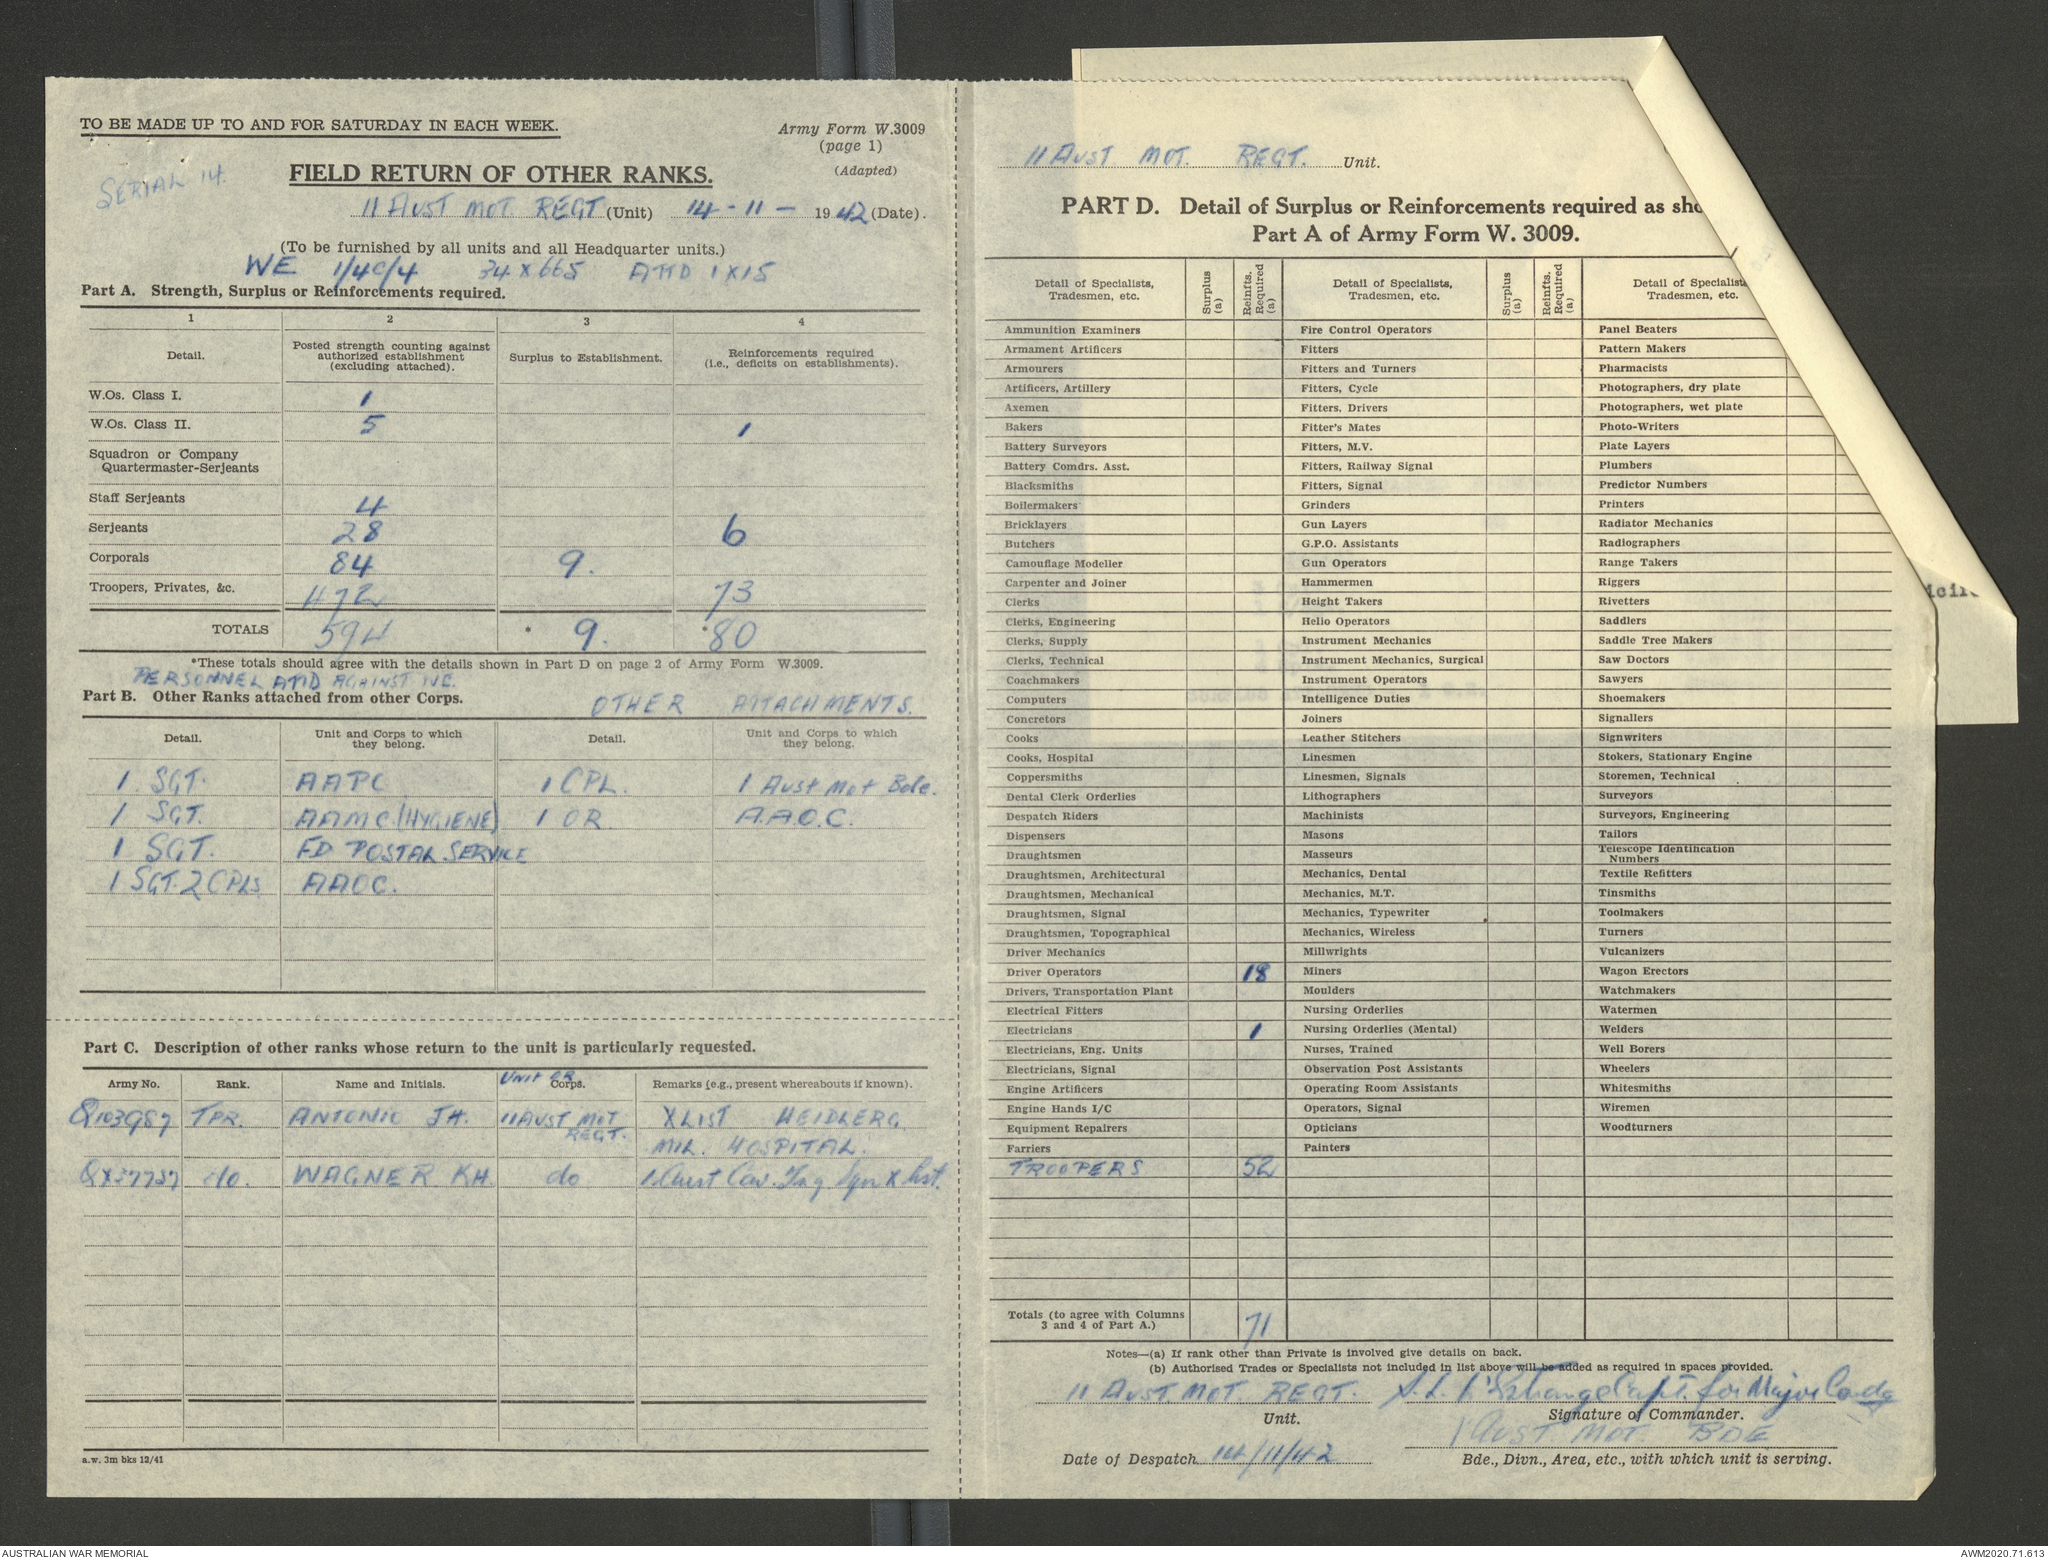 TO BE MADE UP TO AND FOR SATURDAY IN EACH WEEK.
Army Form W.3009
(page 1)
(Adapted)
SERIAL 14.
FIELD RETURN OF OTHER RANKS.
11 AUST MOT REGT (Unit) 14-11- 1942 (Date).
(To be furnished by all units and all Headquarter units.)
WE 1/4C/4 34 X 665 ATTD 1 X 15
Part A. Strength, Surplus or Reinforcements required.
1 2 3 4
Detail. Posted strength counting against authorized establishment (excluding attached). Surplus to Establishment. Reinforcements required (i.e., deficits on establishments).
W.Os. Class I. 1
W.Os. Class II. 5 1
Squadron or Company
Quartermaster-Serjeants
Staff Serjeants 4
Serjeants 28 6
Corporals 84 9.
Troopers, Privates, &c. 472 73
TOTALS 594 * 9. *80
*These totals should agree with the details shown in Part D on page 2 of Army Form W.3009.
PERSONNEL ATTD AGAINST WE.
Part B. Other Ranks attached from other Corps. OTHER ATTACHMENTS.
Detail. Unit and Corps to which they belong. Detail. Unit and Corps to which they belong.
1 SGT. AAPC 1 CPL. 1 Aust Mot Bde.
1 SGT. AAMC (HYGIENE) 1 OR. A.A.O.C.
1 SGT. FD POSTAL SERVICE
1 SGT. 2 CPLS AAOC.
Part C. Description of other ranks whose return to the unit is particularly requested.
Army No. Rank. Name and Initials. UNIT OR Corps. Remarks (e.g., present whereabouts if known).
Q103987 TPR. ANTONIO JH. 11 AUST MOT REGT. X LIST HEIDLERG
MIL. HOSPITAL.
QX37737 do. WAGNER KH. do 1 Aust Cav. Trg. Sqn X list.
a.w. 3m bks 12/41
11 AUST MOT. REGT. Unit.
PART D. Detail of Surplus or Reinforcements required as sho
Part A of Army Form W. 3009.
Detail of Specialists, Tradesmen, etc. Surplus (a) Reinfts. Required (a) Detail of Specialists, Tradesmen, etc. Surplus (a) Reinfts. Required (a) Detail of Specialists Tradesmen, etc.
Ammunition Examiners Fire Control Operators Panel Beaters
Armament Artificers Fitters Pattern Makers
Armourers Fitters and Turners Pharmacists
Artificers, Artillery Fitters, Cycle Photographers, dry plate
Axemen Fitters, Drivers Photographers, wet plate
Bakers Fitter's Mates Photo-Writers
Battery Surveyors Fitters, M.V. Plate Layers
Battery Comdrs. Asst. Fitters, Railway Signal Plumbers
Blacksmiths Fitters, Signal Predictor Numbers
Boilermakers Grinders Printers
Bricklayers Gun Layers Radiator Mechanics
Butchers G.P.O. Assistants Radiographers
Camouflage Modeller Gun Operators Range Takers
Carpenter and Joiner Hammermen Riggers
Clerks Height Takers Rivetters
Clerks, Engineering Helio Operators Saddlers
Clerks, Supply Instrument Mechanics Saddle Tree Makers
Clerks, Technical Instrument Mechanics, Surgical Saw Doctors
Coachmakers Instrument Operators Sawyers
Computers Intelligence Duties Shoemakers
Concretors Joiners Signallers
Cooks Leather Stitchers Signwriters
Cooks, Hospital Linesmen Stokers, Stationary Engine
Coppersmiths Linesmen, Signals Storemen, Technical
Dental Clerk Orderlies Lithographers Surveyors
Despatch Riders Machinists Surveyors, Engineering
Dispensers Masons Tailors
Draughtsmen Masseurs Telescope Identification Numbers
Draughtsmen, Architectural Mechanics, Dental Textile Refitters
Draughtsmen, Mechanical Mechanics, M.T. Tinsmiths
Draughtsmen, Signal Mechanics, Typewriter Toolmakers
Draughtsmen, Topographical Mechanics, Wireless Turners
Driver Mechanics Millwrights Vulcanizers
Driver Operators 18 Miners Wagon Erectors
Drivers, Transportation Plant Moulders Watchmakers
Electrical Fitters Nursing Orderlies Watermen
Electricians 1 Nursing Orderlies (Mental) Welders
Electricians, Eng. Units Nurses, Trained Well Borers
Electricians, Signal Observation Post Assistants Wheelers
Engine Artificers Operating Room Assistants Whitesmiths
Engine Hands I/C Operators, Signal Wiremen
Equipment Repairers Opticians Woodturners
Farriers Painters
TROOPERS 52
Totals (to agree with Columns 3 and 4 of Part A.) 71
Notes—(a) If rank other than Private is involved give details on back.
(b) Authorised Trades or Specialists not included in list above will be added as required in spaces provided.
11 AUST. MOT REGT. S. L. L'Estrange Capt. for Major Comdg
Unit. Signature of Commander.
1 AUST MOT BDE
Date of Despatch 14/11/42 Bde., Divn., Area, etc., with which unit is serving.
AUSTRALIAN WAR MEMORIAL
AWM2020.71.613